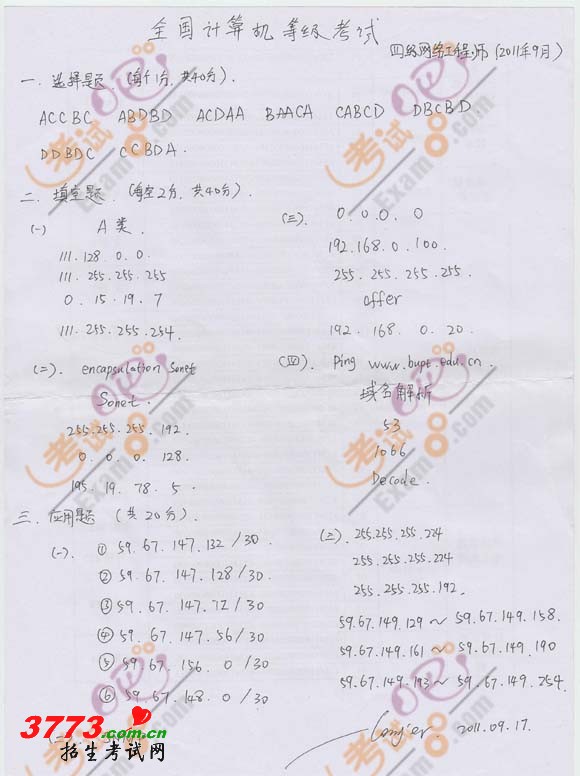 全国计算机等级考试
四级网络工程师 (2011年9月)
一. 选择题. (每个1分, 共40分).
ACCBC ABDBD ACDAA BAACA CABCD DBCBD
DDBDC CCBDA.
二. 填空题. (每空2分, 共40分).
(一) A类.
111.128.0.0.
111.255.255.255
0.15.19.7
111.255.255.254.
(二). encapsulation Sonet
Sonet.
255.255.255.192.
0.0.0.128.
195.19.78.5.
(三). 0.0.0.0
192.168.0.100.
255.255.255.255.
offer
192.168.0.20.
(四). Ping www.bupt.edu.cn.
域名解析
53
1066
Decode.
三. 应用题 (共20分).
(一). ① 59.67.147.132/30.
② 59.67.147.128/30.
③ 59.67.147.72/30
④ 59.67.147.56/30
⑤ 59.67.156.0/30
⑥ 59.67.148.0/30
(三). 255.255.255.224
255.255.255.224.
255.255.255.192.
59.67.149.129 ~ 59.67.149.158.
59.67.149.161 ~ 59.67.149.190
59.67.149.193 ~ 59.67.149.254.
2011.09.17.
3773.com.cn
招生考试网
考试吧
Exam8.com